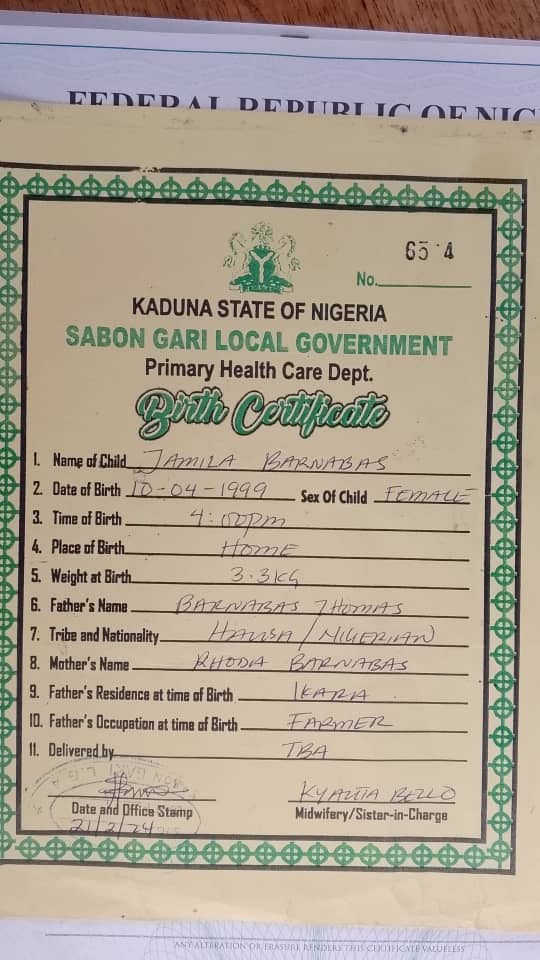 FEDERAL REPUBLIC OF NIG
65 4
No.
KADUNA STATE OF NIGERIA
SABON GARI LOCAL GOVERNMENT
Primary Health Care Dept.
Birth Certificate
1. Name of Child JAMILA BARNABAS
2. Date of Birth 10-04-1999 Sex Of Child FEMALE
3. Time of Birth 4:00pm
4. Place of Birth HOME
5. Weight at Birth 3.3kg
6. Father's Name BARNABAS THOMAS
7. Tribe and Nationality HAUSA/NIGERIAN
8. Mother's Name RHODA BARNABAS
9. Father's Residence at time of Birth IKARA
10. Father's Occupation at time of Birth FARMER
11. Delivered by TBA
BELLO
Date and Office Stamp Midwifery/Sister-in-Charge
21/2/24
ANY ALTERATION OR ERASURE RENDERS THIS CERTIFICATE VALUELESS